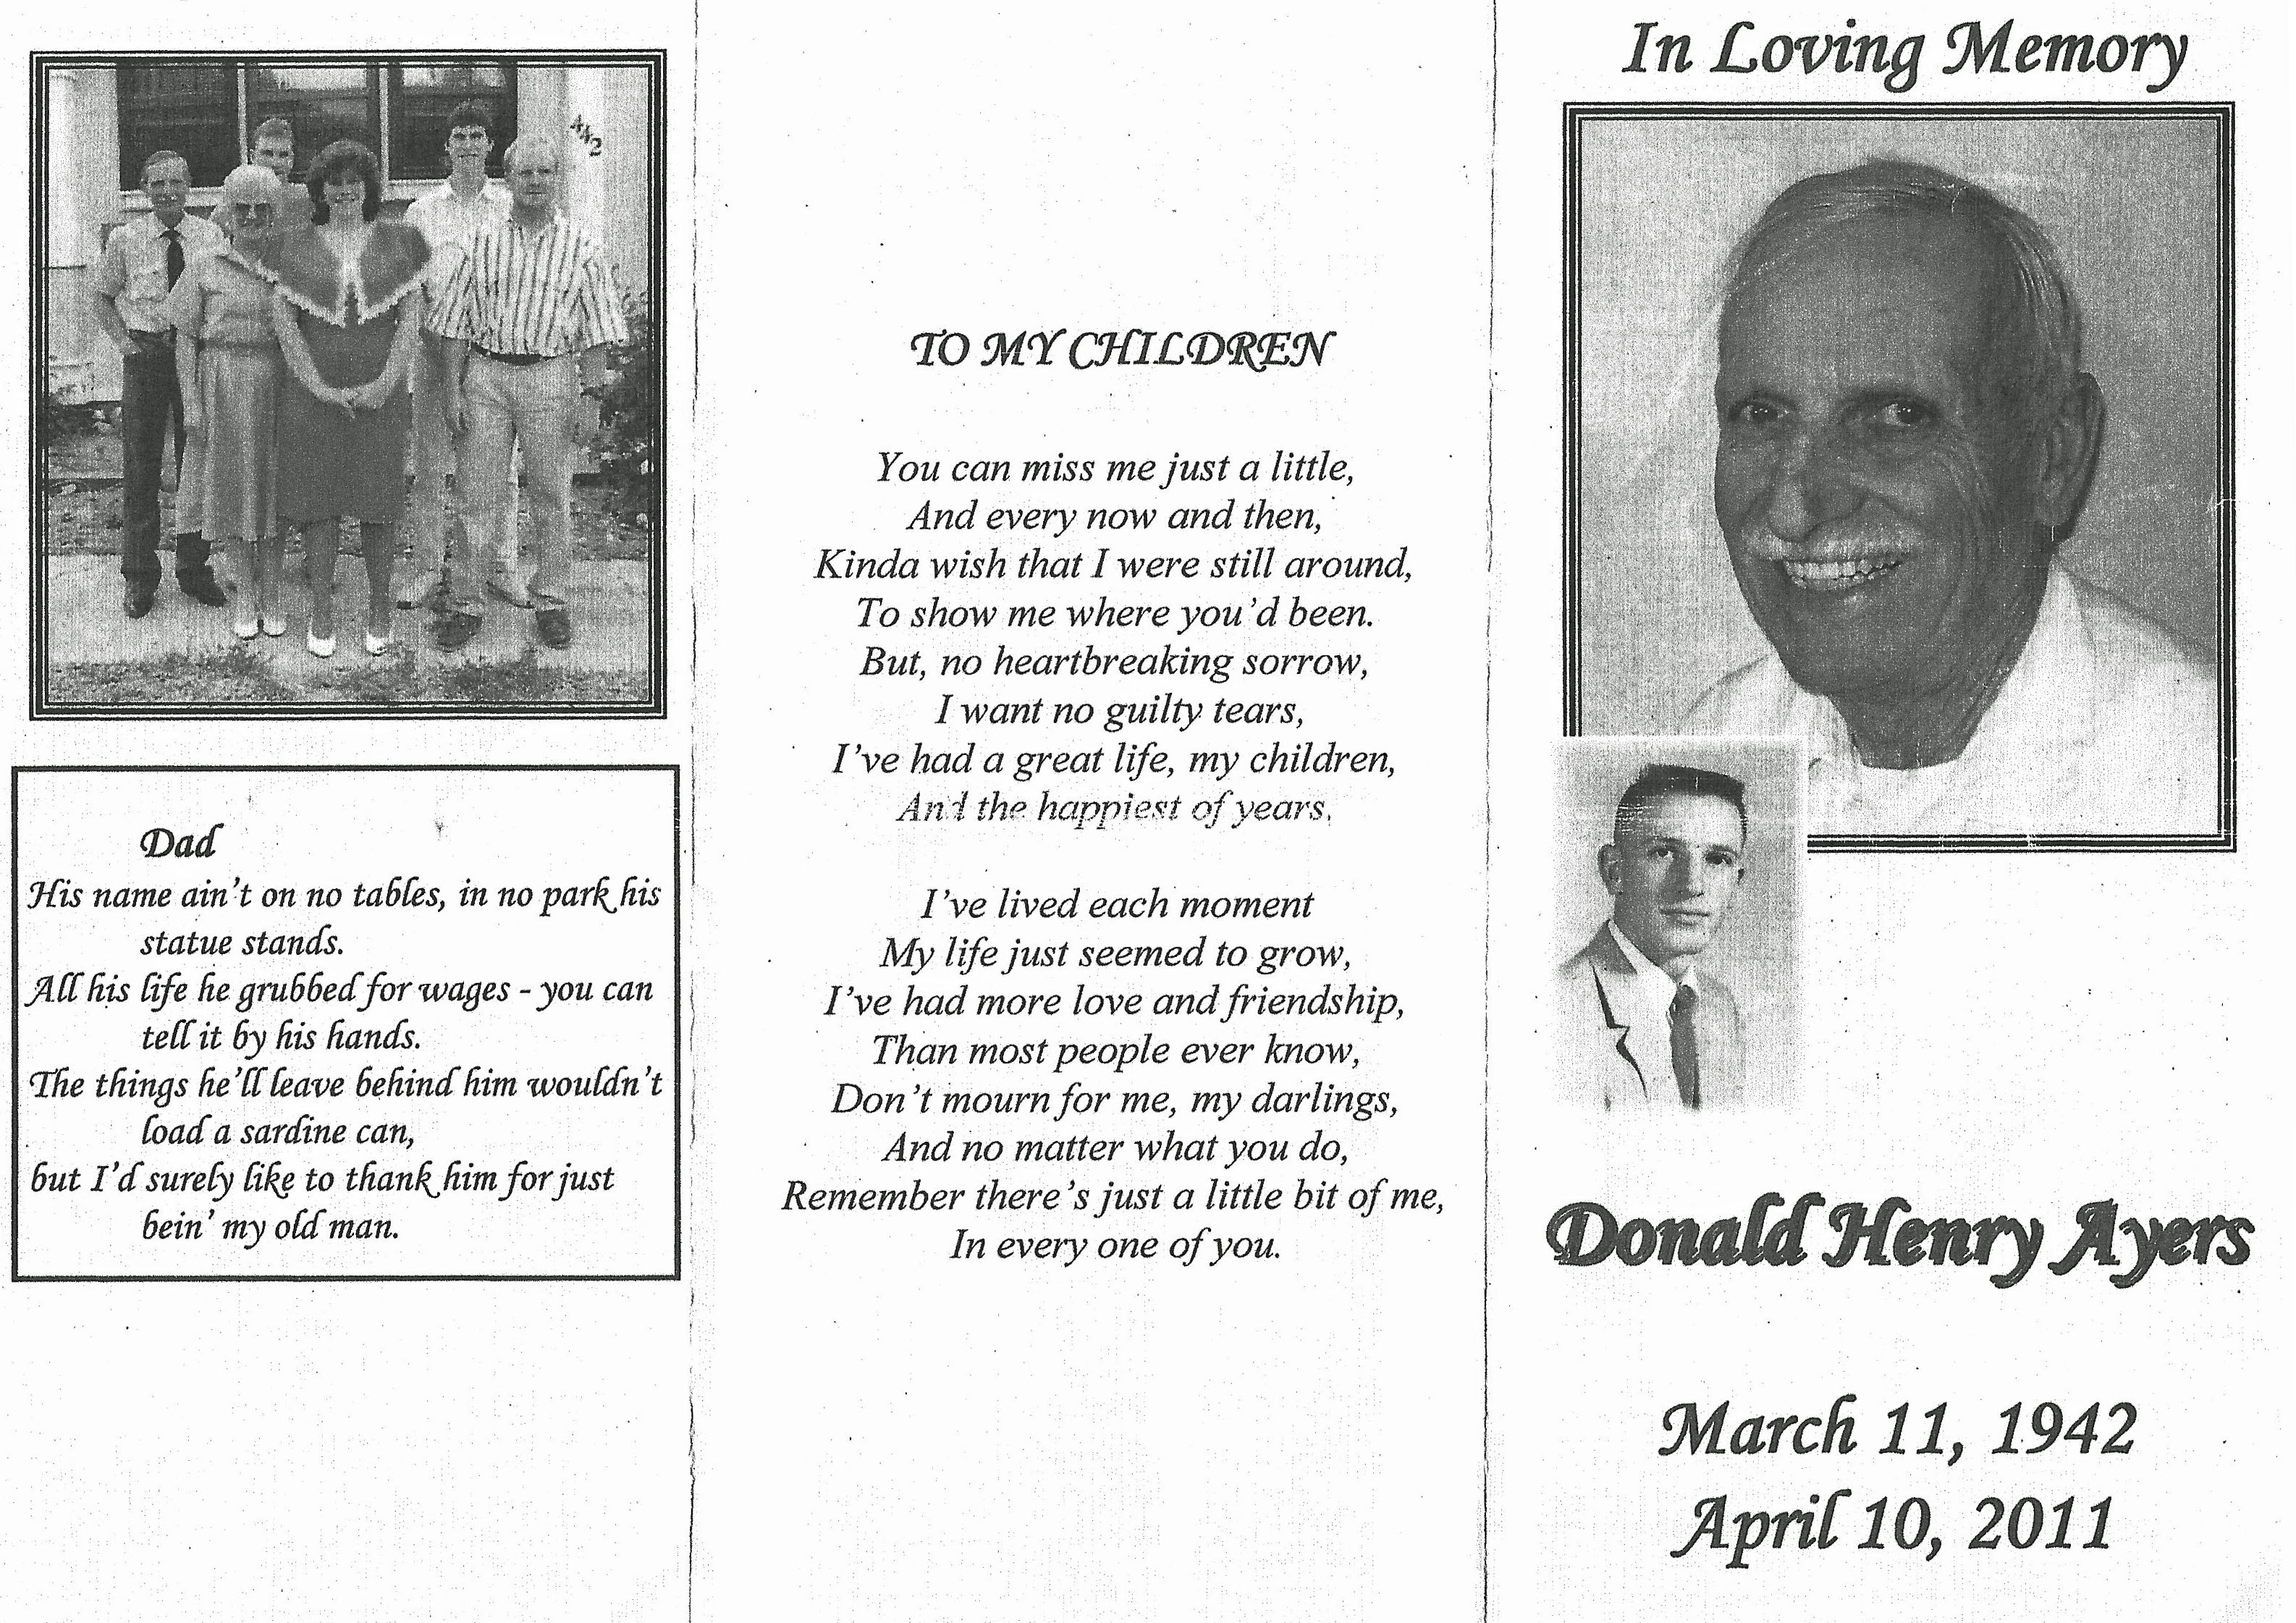 Dad
His name ain't on no tables, in no park his
statue stands.
All his life he grubbed for wages - you can
tell it by his hands.
The things he'll leave behind him wouldn't
load a sardine can,
but I'd surely like to thank him for just
bein' my old man.
TO MY CHILDREN
You can miss me just a little,
And every now and then,
Kinda wish that I were still around,
To show me where you'd been.
But, no heartbreaking sorrow,
I want no guilty tears,
I've had a great life, my children,
And the happiest of years.
I've lived each moment
My life just seemed to grow,
I've had more love and friendship,
Than most people ever know,
Don't mourn for me, my darlings,
And no matter what you do,
Remember there's just a little bit of me,
In every one of you.
In Loving Memory
Donald Henry Ayers
March 11, 1942
April 10, 2011